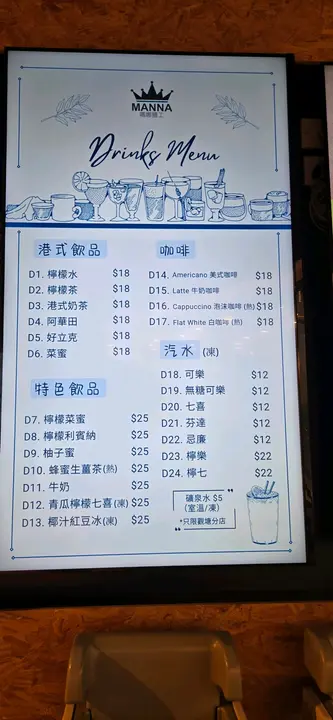 MANNA
Drinks Menu
港式飲品
D1. 檸檬水 $18
D2. 檸檬茶 $18
D3. 港式奶茶 $18
D4. 阿華田 $18
D5. 好立克 $18
D6. 菜蜜 $18
特色飲品
D7. 檸檬菜蜜 $25
D8. 檸檬利賓納 $25
D9. 柚子蜜 $25
D10. 蜂蜜生薑茶(熱) $25
D11. 牛奶 $25
D12. 青瓜檸檬七喜(凍) $25
D13. 椰汁紅豆冰(凍) $25
咖啡
D14. Americano 美式咖啡 $18
D15. Latte 牛奶咖啡 $18
D16. Cappuccino 泡沫咖啡(熱) $18
D17. Flat White 白咖啡(熱) $18
汽水 (凍)
D18. 可樂 $12
D19. 無糖可樂 $12
D20. 七喜 $12
D21. 芬達 $12
D22. 忌廉 $12
D23. 檸樂 $22
D24. 檸七 $22
礦泉水 $5
(室溫/凍)
*只限觀塘分店